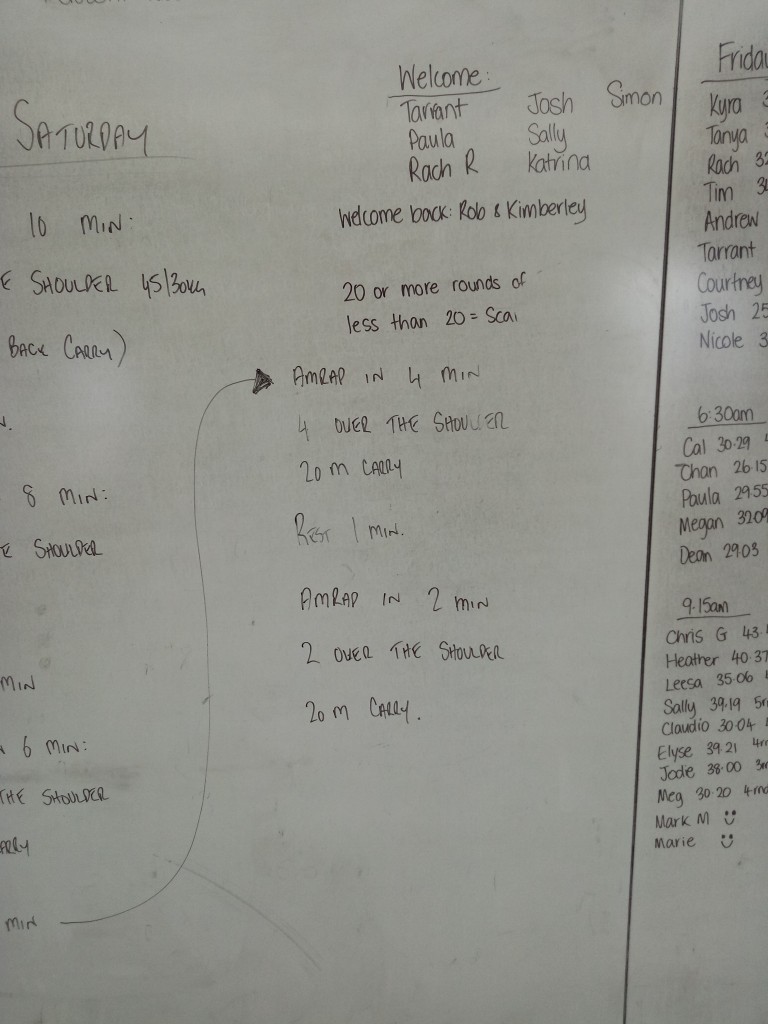 SATURDAY
10 MIN:
E SHOULDER 45/30KG
BACK CARRY)
N.
8 MIN:
E SHOULDER
MIN
6 MIN:
THE SHOULDER
ARRY
MIN
Welcome:
Tarrant Josh Simon
Paula Sally
Rach R Katrina
Welcome back: Rob & Kimberley
20 or more rounds of
less than 20 =
AMRAP IN 4 MIN
4 OVER THE SHOULDER
20 M CARRY
REST 1 MIN.
AMRAP IN 2 MIN
2 OVER THE SHOULDER
20 M CARRY.
Frida
Kyra 3
Tanya 3
Rach 32
Tim
Andrew
Tarrant
Courtney
Josh 25
Nicole 3
6:30am
Cal 30.29
Chan 26.15
Paula 29.55
Megan 32.09
Dean 29.03
9.15am
Chris G 43.
Heather 40.37
Leesa 35.06
Sally 39.19 5r
Claudio 30.04
Elyse 39.21 4r
Jodie 38.00 3r
Meg 30.20 4rnd
Mark M
Marie